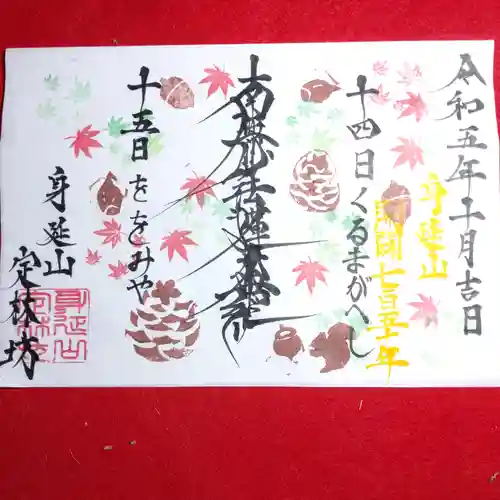 令和五年十一月吉日
身延山
開闢七百五十年
十四日くるまがへし
南無妙法蓮華経
十五日をゝみや
身延山
定林坊